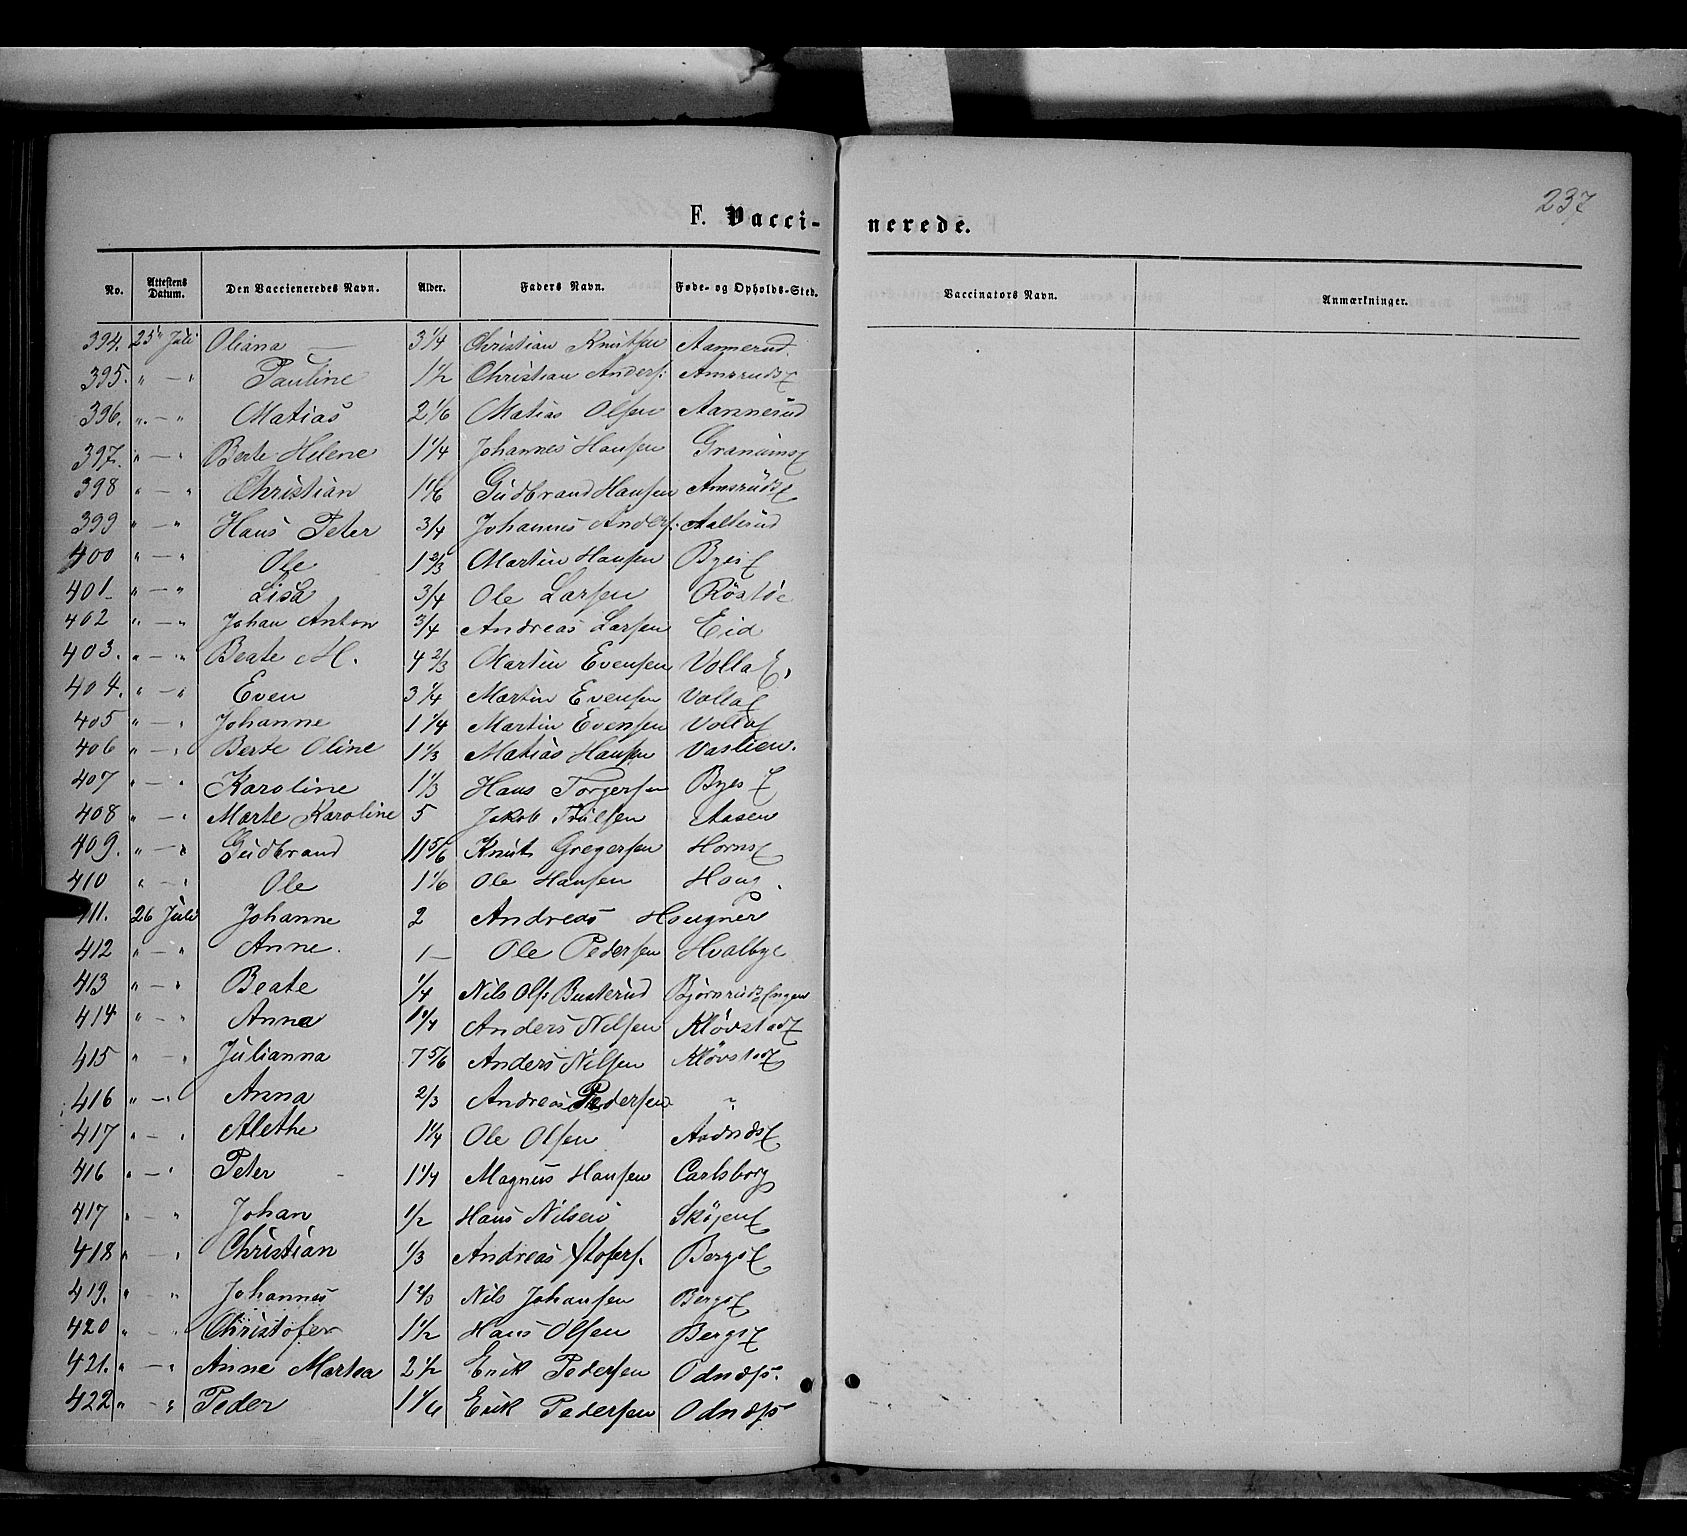 237
F. Vacci- nerede.
No. Attestens Datum. Den Vaccieneredes Navn. Alder. Faders Navn. Føde- og Opholds-Sted. Vaccinators Navn. Anmærkninger.
394. 25 Juli Oliana 3 1/4 Christian Knutsen Aannerud.
395. " — " Pauline 1 1/2 Christian Anders: Amsrudsf
396. " — " Matias 2 1/6 Matias Olsen Aannerud
397. " — " Berte Helene 1 1/4 Johannes Hansen
398 " — " Christian 1 1/6 Gudbrand Hansen Amsrudsf
399 " — " Hans Peter 3/4 Johannes Anders: Aalterud
400 " — " Ole 1 2/3 Martin Hansen Byesf
401. " — " Lisa 3/4 Ole Larsen
402 " — " Johan Anton 3/4 Andreas Larsen Eid
403. " — " Beate M. 4 2/3 Martin Evensen Volla E.
404. " — " Even 3 1/4 Martin Evensen Vollaf
405 " — " Johanne 1 1/4 Martin Evensen Vollaf
406 " — " Berte Oline 1 1/3 Matias Hansen Vaslien.
407 " — " Karoline 1 1/3 Hans Torgersen Byesf
408 " — " Marte Karoline 5 Jakob Aasen
409. " — " Gudbrand 11 5/6 Knut Gregersen Hornsf
410 " — " Ole 1 1/6 Ole Hansen Houg.
411. 26 Juli Johanne 2 Andreas Hougner
412 " — " Anne. 1 — Ole Pedersen Hvalbye
413 " — " Beate 1/4 Nils Ols: Busterud Bjørnrudsengen
414 " — " Anna 1 1/4 Anders Nilsen Kløvstadf
415 " — " Julianna 7 5/6 Anders Nilsen Kløvstadf
416 " — " Anna 2/3 Andreas Pedersen "
417 " — " Alethe 1 1/4 Ole Olsen
416 " — " Peter 1 1/4 Magnus Hansen Carlsborg
417 " — " Johan 1/2 Hans Nilsen Skøjenf
418 " — " Christian 1/3 Andreas Bergsf
419. " — " Johannes 1 2/3 Nils Johansen Bergsf
420 " — " Christofer 1 1/2 Hans Olsen Bergsf
421. " — " Anne Martea 2 1/2 Erik Pedersen Odnæss.
422 " — " Peder 1 1/6 Erik Pedersen Odnæss